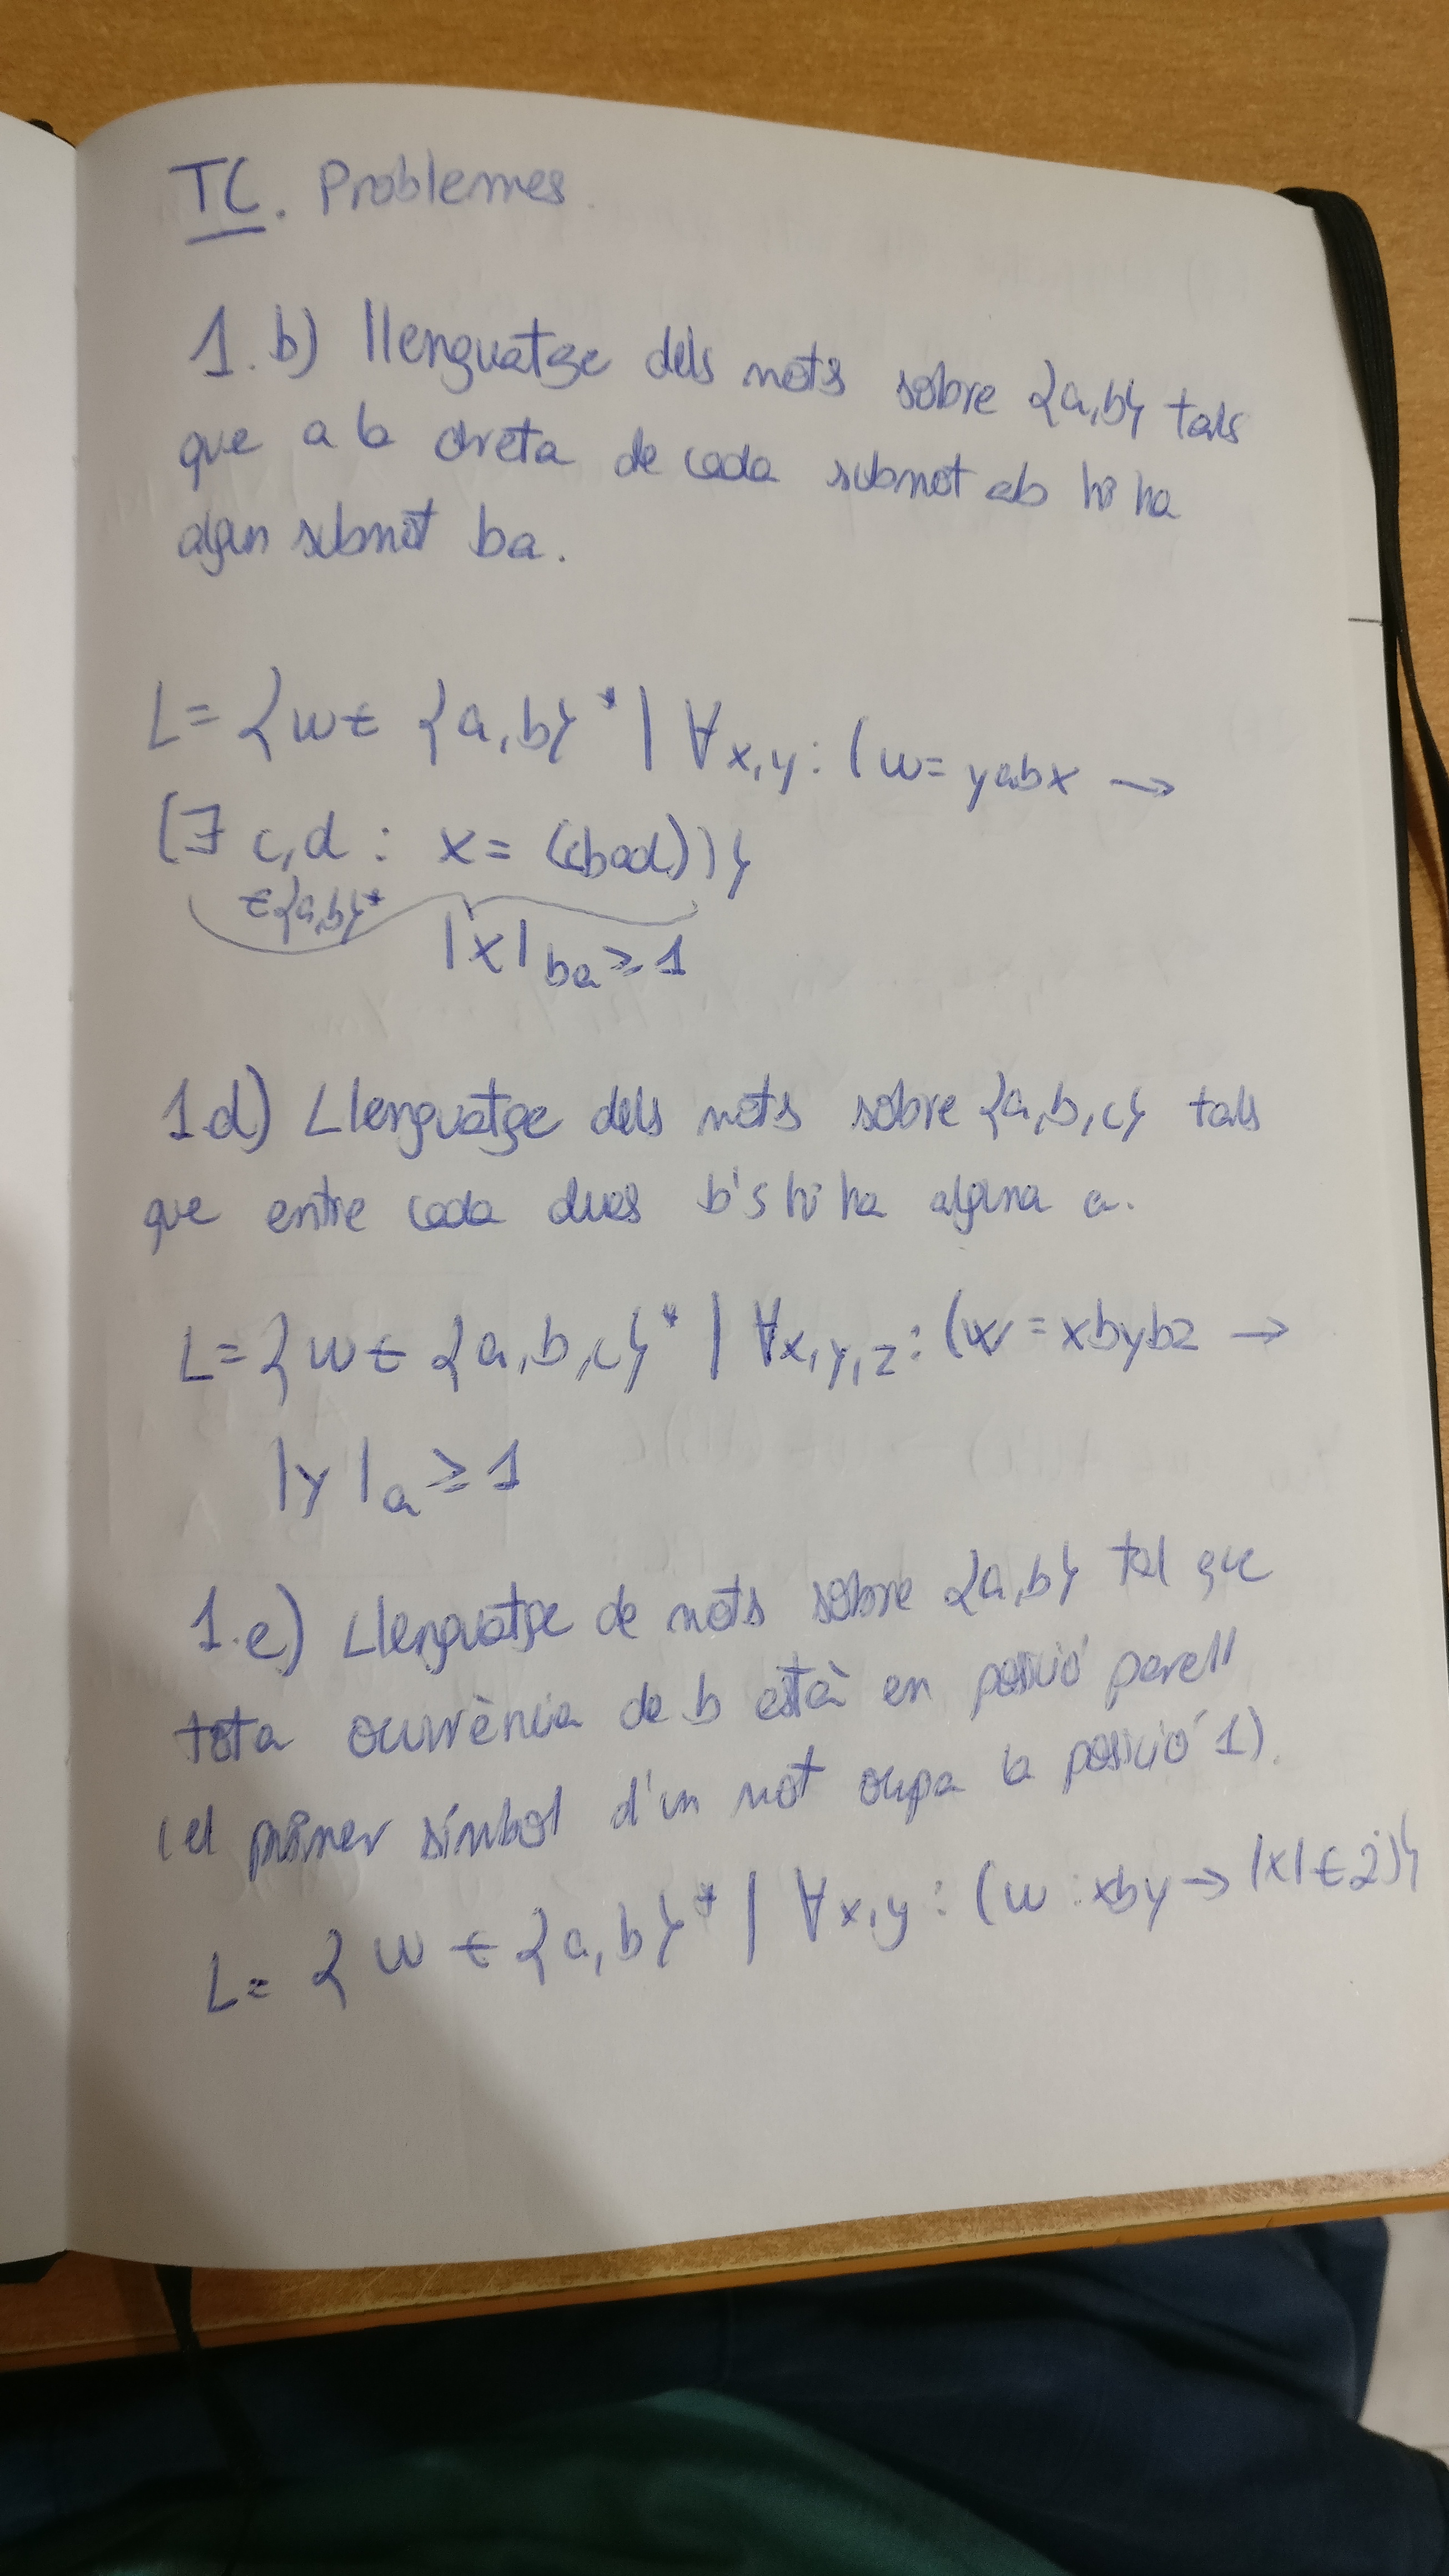 TC. Problemes.
1.b) llenguatge dels mots sobre {a,b} tals
que a la dreta de cada submot ab hi ha
algun submot ba.
L = {w ∈ {a,b}* | ∀x,y: (w = yabx →
(∃ c,d : x = (cbad))}
∈{a,b}*
|x|ba ≥ 1
1.d) Llenguatge dels mots sobre {a,b,c} tals
que entre cada dues b's hi ha alguna a.
L = {w ∈ {a,b,c}* | ∀x,y,z: (w = xbybz →
|y|a ≥ 1
1.e) Llenguatge de mots sobre {a,b} tal que
tota ocurrència de b està en posició parell
(el primer símbol d'un mot ocupa la posició 1).
L = {w ∈ {a,b}* | ∀x,y: (w : xby → |x| ∈ 2̇)}